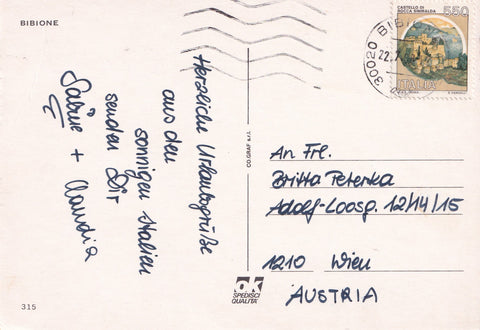 BIBIONE
Herzliche Urlaubsgrüße
aus den
sonnigen Italien
senden Dir
Sabine + Claudia
CO.GRAF s.r.l.
ok
SPEDISCI
QUALITÀ
315
550
CASTELLO DI
ROCCA SINIBALDA
ITALIA
30020 BIBIONE
22.7
An Frl.
Britta Petenka
Adolf-Loosg. 12/14/15
1210 Wien
AUSTRIA